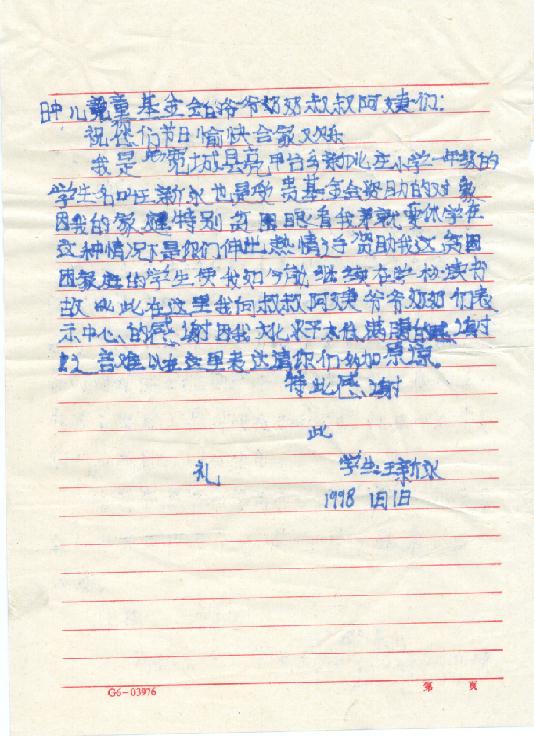 儿童基金会的爷爷奶奶叔叔阿姨们:
祝您们节日愉快合家欢乐
我是 宽城县亮甲台乡 小学一年级的
学生名叫王新永也是受贵基金会资助的对象
因我的家庭特别贫困眼看我弟就要休学在
这种情况下是你们伸出热情之手资助我这贫困
困家庭的学生使我如今能继续在学校读书
故此在这里我向叔叔阿姨爷爷奶奶们表
示中心的感谢因我文化水平太低满腹的感谢
之言难以在这里表达请你们多加原谅。
特此感谢
此
礼 学生:王新永
1998 1月1日
G6-03976 第 页